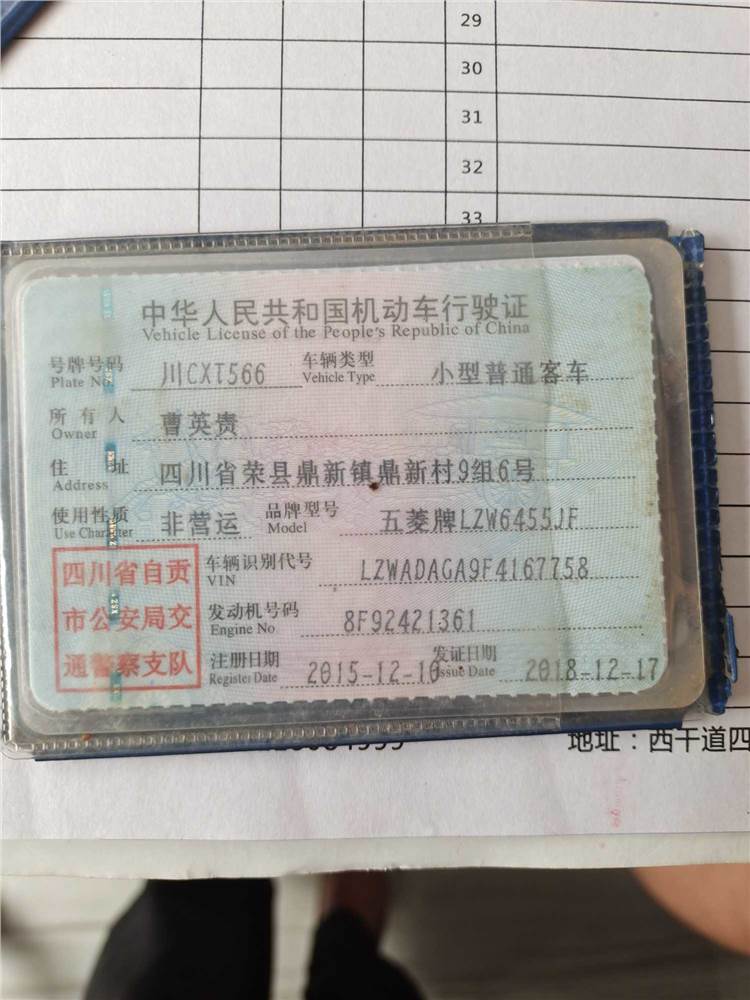 29
30
31
32
33
中华人民共和国机动车行驶证
Vehicle License of the People's Republic of China
号牌号码 川CXT566 车辆类型 小型普通客车
Plate No. Vehicle Type
所有人 曹英贵
Owner
住址 四川省荣县鼎新镇鼎新村9组6号
Address
使用性质 非营运 品牌型号 五菱牌LZW6455JF
Use Character Model
四川省自贡
市公安局交
通警察支队
车辆识别代号 LZWADAGA9F4167758
VIN
发动机号码 8F92421361
Engine No
注册日期 2015-12-10 发证日期 2018-12-17
Register Date Issue Date
地址：西干道四